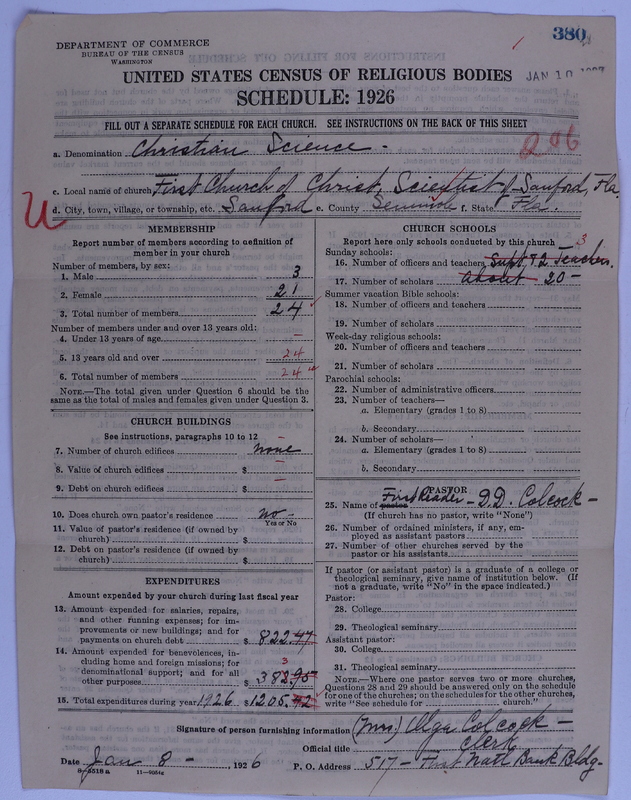 380
DEPARTMENT OF COMMERCE
BUREAU OF THE CENSUS
WASHINGTON
JAN 10
UNITED STATES CENSUS OF RELIGIOUS BODIES
SCHEDULE: 1926
FILL OUT A SEPARATE SCHEDULE FOR EACH CHURCH. SEE INSTRUCTIONS ON THE BACK OF THIS SHEET
a. Denomination Christian Science -
206
c. Local name of church First Church of Christ, Scientist of Sanford, Fla.
U
d. City, town, village, or township, etc. Sanford e. County Seminole f. State Fla.
MEMBERSHIP
Report number of members according to definition of
member in your church
Number of members, by sex:
1. Male 3
2. Female 21
3. Total number of members 24
Number of members under and over 13 years old:
4. Under 13 years of age –
5. 13 years old and over 24
6. Total number of members 24
NOTE.—The total given under Question 6 should be the
same as the total of males and females given under Question 3.
CHURCH BUILDINGS
See instructions, paragraphs 10 to 12
7. Number of church edifices none
8. Value of church edifices $ –
9. Debt on church edifices $ –
10. Does church own pastor's residence no -
Yes or No
11. Value of pastor's residence (if owned by
church) $
12. Debt on pastor's residence (if owned by
church) $
EXPENDITURES
Amount expended by your church during last fiscal year
13. Amount expended for salaries, repairs,
and other running expenses; for im-
provements or new buildings; and for
payments on church debt $ 822.47
14. Amount expended for benevolences, in-
cluding home and foreign missions; for
denominational support; and for all 3
other purposes $ 382.95
15. Total expenditures during year 1926 $ 1205.42
CHURCH SCHOOLS
Report here only schools conducted by this church
Sunday schools: 3
16. Number of officers and teachers Supt & 2 Teachers.
17. Number of scholars About 20 -
Summer vacation Bible schools:
18. Number of officers and teachers
19. Number of scholars
Week-day religious schools:
20. Number of officers and teachers
21. Number of scholars
Parochial schools:
22. Number of administrative officers
23. Number of teachers—
a. Elementary (grades 1 to 8)
b. Secondary
24. Number of scholars—
a. Elementary (grades 1 to 8)
b. Secondary
PASTOR
25. Name of pastor First Reader - D.D. Colcock -
(If church has no pastor, write "None")
26. Number of ordained ministers, if any, em-
ployed as assistant pastors
27. Number of other churches served by the
pastor or his assistants
If pastor (or assistant pastor) is a graduate of a college or
theological seminary, give name of institution below. (If
not a graduate, write "No" in the space indicated.)
Pastor:
28. College
29. Theological seminary
Assistant pastor:
30. College
31. Theological seminary
NOTE.—Where one pastor serves two or more churches,
Questions 28 and 29 should be answered only on the schedule
for one of the churches; on the schedules for the other churches,
write "See schedule for church."
Signature of person furnishing information (Mrs) Olga Colcock -
Official title Clerk
Date Jan 8 - , 1926
P. O. Address 517 - First Natl Bank Bldg.
8-5518 a 11-9054c